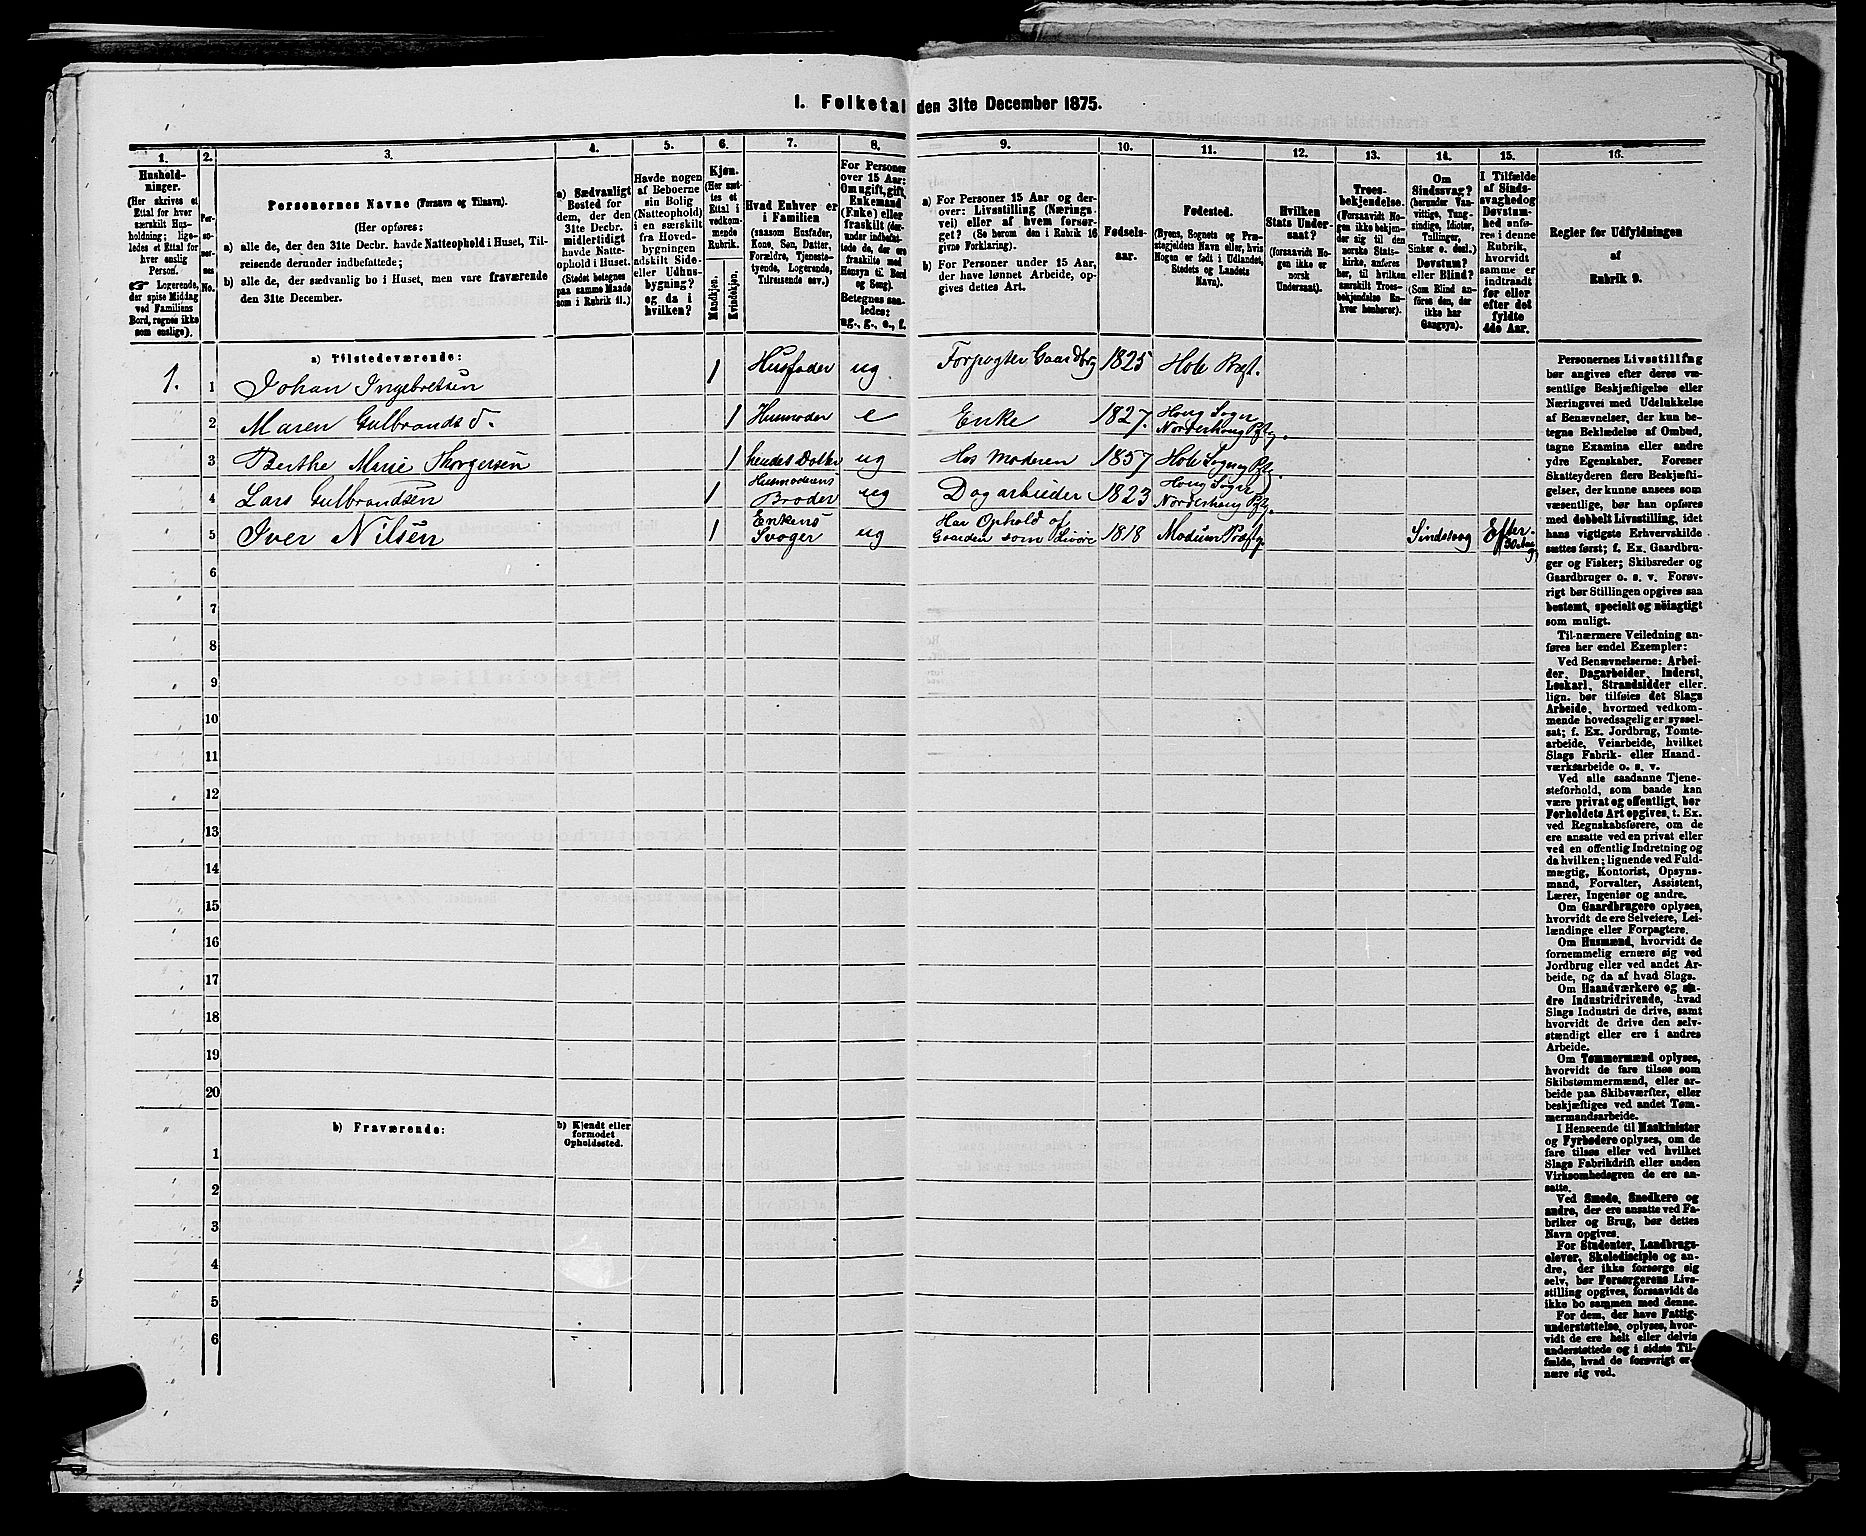 I. Folketal den 31te December 1875.
1.
Hushold-
ninger.
(Her skrives et
Ettal for hver
særskilt Hus-
holdning; lige-
ledes et Ettal for
hver enslig
Person.
Logerende,
der spise Middag
ved Familiens
Bord, regnes ikke
som enslige).
2.
Per-
so-
ner-
nes
No.
3.
Personernes Navne (Fornavn og Tilnavn).
(Her opføres:
a) alle de, der den 31te Decbr. havde Natteophold i Huset, Til-
reisende derunder indbefattede;
b) alle de, der sædvanlig bo i Huset, men vare fraværende
den 31te December.
4.
a) Sædvanligt
Bosted for
dem, der den
31te Decbr.
midlertidigt
havde Natte-
ophold i Huset.
(Stedet betegnes
paa samme Maade
som i Rubrik 11.)
5.
Havde nogen
af Beboerne
sin Bolig
(Natteophold)
i en særskilt
fra Hoved-
bygningen
adskilt Side-
eller Udhus-
bygning?
og da i
hvilken?
6.
Kjøn.
(Her sæt-
tes et
Ettal i
vedkom-
mende
Rubrik.
Mandkjøn.
Kvindekjøn.
7.
Hvad Enhver er
i Familien
(saasom Husfader,
Kone, Søn, Datter,
Forældre, Tjeneste-
tyende, Logerende,
Tilreisende osv.)
8.
For Personer
over 15 Aar:
Om ugift, gift,
Enkemand
(Enke) eller
fraskilt (der-
under indbefat-
tede de, der ere
fraskilte med
Hensyn til Bord
og Seng).
Betegnes saa-
ledes:
ug., g., e., f.
9.
a) For Personer 15 Aar og der-
over: Livsstilling (Nærings-
vei) eller af hvem forsør-
get? (Se herom den i Rubrik 16
givne Forklaring).
b) For Personer under 15 Aar,
der have lønnet Arbeide, op-
gives dettes Art.
10.
Fødsels-
aar.
11.
Fødested.
(Byens, Sognets og Præ-
stegjeldets Navn eller, hvis
Nogen er født i Udlandet,
Stedets og Landets
Navn).
12.
Hvilken
Stats Under-
saat?
(forsaavidt No-
gen ikke er
norsk
Undersaat).
13.
Troes-
bekjendelse.
(Forsaavidt No-
gen ikke bekjen-
der sig til den
norske Stats-
kirke, anføres
her, til hvilken
særskilt Troes-
bekjendelse En-
hver henhører).
14.
Om
Sindssvag?
(herunder Van-
vittige, Tung-
sindige, Idioter,
Tullinger,
Sinker o. desl.)
Døvstum?
eller Blind?
(Som Blind an-
føres den, der
ikke har
Gangsyn).
15.
I Tilfælde
af Sinds-
svaghed og
Døvstum-
hed anfø-
res i denne
Rubrik,
hvorvidt
samme er
indtraadt
før eller
efter det
fyldte
4de Aar.
16.
Regler for Udfyldningen
af
Rubrik 9.
a) Tilstedeværende:
1. 1 Johan Ingebretsen 1 Husfader ug. Forpagter Gaardbrg 1825 Hole Prgt.
2 Maren Gulbrandsd. 1 Husmoder e Enke 1827. Houg Sogn, Norderhoug Pftg.
3 Berthe Marie Thorgersen 1 hendes Datter ug Hos Moderen 1857 Hole Sogn og Pft.
4 Lars Gulbrandsen 1 Husmoderens Broder ug Dagarbeider 1823 Houg Sogn, Norderhoug Pftg.
5 Iver Nilsen 1 Enkens Svoger ug Har Ophold af Gaarden som 1818 Modum Præstg. Sindssvag Efter
6
7
8
9
10
11
12
13
14
15
16
17
18
19
20
b) Fraværende:
b) Kjendt eller
formodet
Opholdssted.
1
2
3
4
5
6
Personernes Livsstilling
bør angives efter deres væ-
sentlige Beskjæftigelse eller
Næringsvei med Udelukkelse
af Benævnelser, der kun be-
tegne Beklædelse af Ombud,
tagne Examina eller andre
ydre Egenskaber. Forener
Skatteyderen flere Beskjæfti-
gelser, der kunne ansees som
væsentlige, bør han opføres
med dobbelt Livsstilling, idet
hans vigtigste Erhvervskilde
sættes først; f. Ex. Gaardbru-
ger og Fisker; Skibsreder og
Gaardbruger o. s. v. Forøv-
rigt bør Stillingen opgives saa
bestemt, specielt og nöiagtigt
som muligt.
Til nærmere Veiledning an-
føres her endel Exempler:
Ved Benævnelserne: Arbei-
der, Dagarbeider, Inderst,
Løskarl, Strandsidder eller
lign. bør tilføies det Slags
Arbeide, hvormed vedkom-
mende hovedsagelig er syssel-
sat; f. Ex. Jordbrug, Tomte-
arbeide, Veiarbeide, hvilket
Slags Fabrik- eller Haand-
værksarbeide o. s. v.
Ved alle saadanne Tjene-
steforhold, som baade kan
være privat og offentligt, bør
Forholdets Art opgives, t. Ex.
ved Regnskabsførere, om de
ere ansatte ved en privat eller
ved en offentlig Indretning og
da hvilken; lignende ved Fuld-
mægtig, Kontorist, Opsyns-
mand, Forvalter, Assistent,
Lærer, Ingeniør og andre.
Om Gaardbrugere oplyses,
hvorvidt de ere Selveiere, Lei-
lændinge eller Forpagtere.
Om Husmænd, hvorvidt de
fornemmelig ernære sig ved
Jordbrug eller ved andet Ar-
beide, og da af hvad Slags.
Om Haandværkere og an-
dre Industridrivende, hvad
Slags Industri de drive, samt
hvorvidt de drive den selv-
stændigt eller ere i andres
Arbeide.
Om Tømmermænd oplyses,
hvorvidt de fare tilsøs som
Skibstømmermænd, eller ar-
beide paa Skibsværfter, eller
beskjæftiges ved andet Tøm-
mermandsarbeide.
I Henseende til Maskinister
og Fyrbødere oplyses, om de
fare tilsøs eller ved hvilket
Slags Fabrikdrift eller anden
Virksomhedsgren de ere an-
satte.
Ved Smede, Snedkere og
andre, der ere ansatte ved Fa-
briker og Brug, bør dettes
Navn opgives.
For Studenter, Landbrugs-
elever, Skoledisciple og an-
dre, der ikke forsørge sig
selv, bør Forsørgerens Livs-
stilling opgives, forsaavidt de
ikke bo sammen med denne.
For dem, der have Fattig-
understøttelse, oplyses, hvor-
vidt de ere helt eller delvis
understøttede og i sidste Til-
fælde, hvad de forøvrigt er-
nære sig ved.